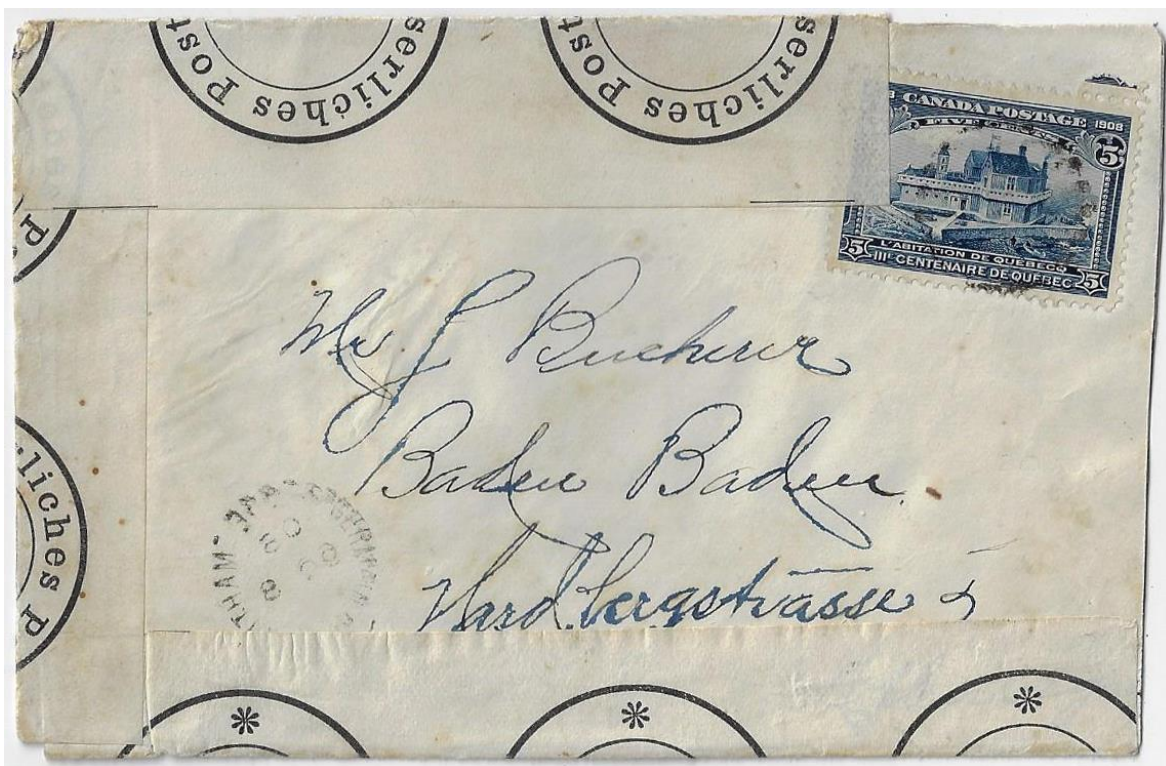 serliches Post
serliches Post
CANADA POSTAGE 1908
FIVE CENTS
5
L'ABITATION DE QUEBECQ
5 IIIᵉ CENTENAIRE DE QUEBEC 5
Mr J Bucherer
Baden Baden
bergstrasse
liches P